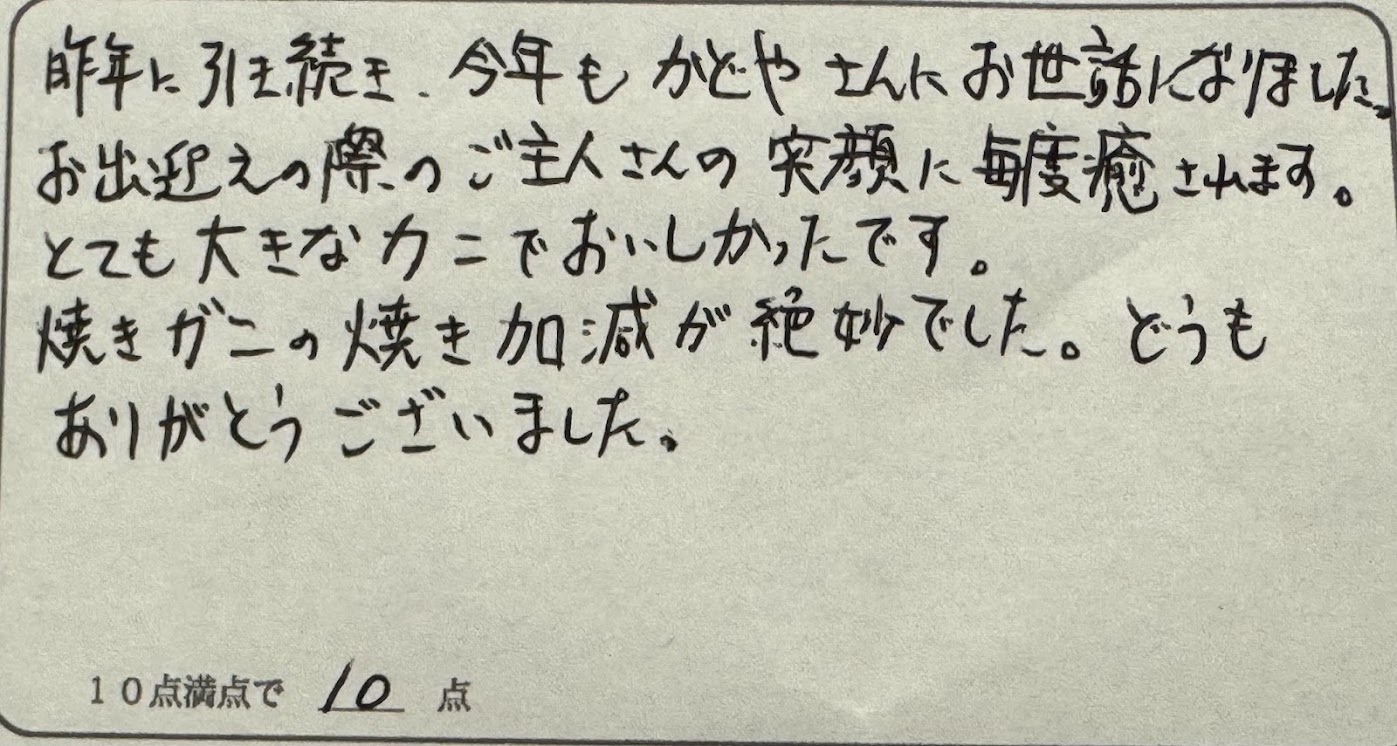 昨年に引き続き、今年もかどやさんにお世話になりました。
お出迎えの際のご主人さんの笑顔に毎度癒されます。
とても大きなカニでおいしかったです。
焼きガニの焼き加減が絶妙でした。どうも
ありがとうございました。
10点満点で 10 点